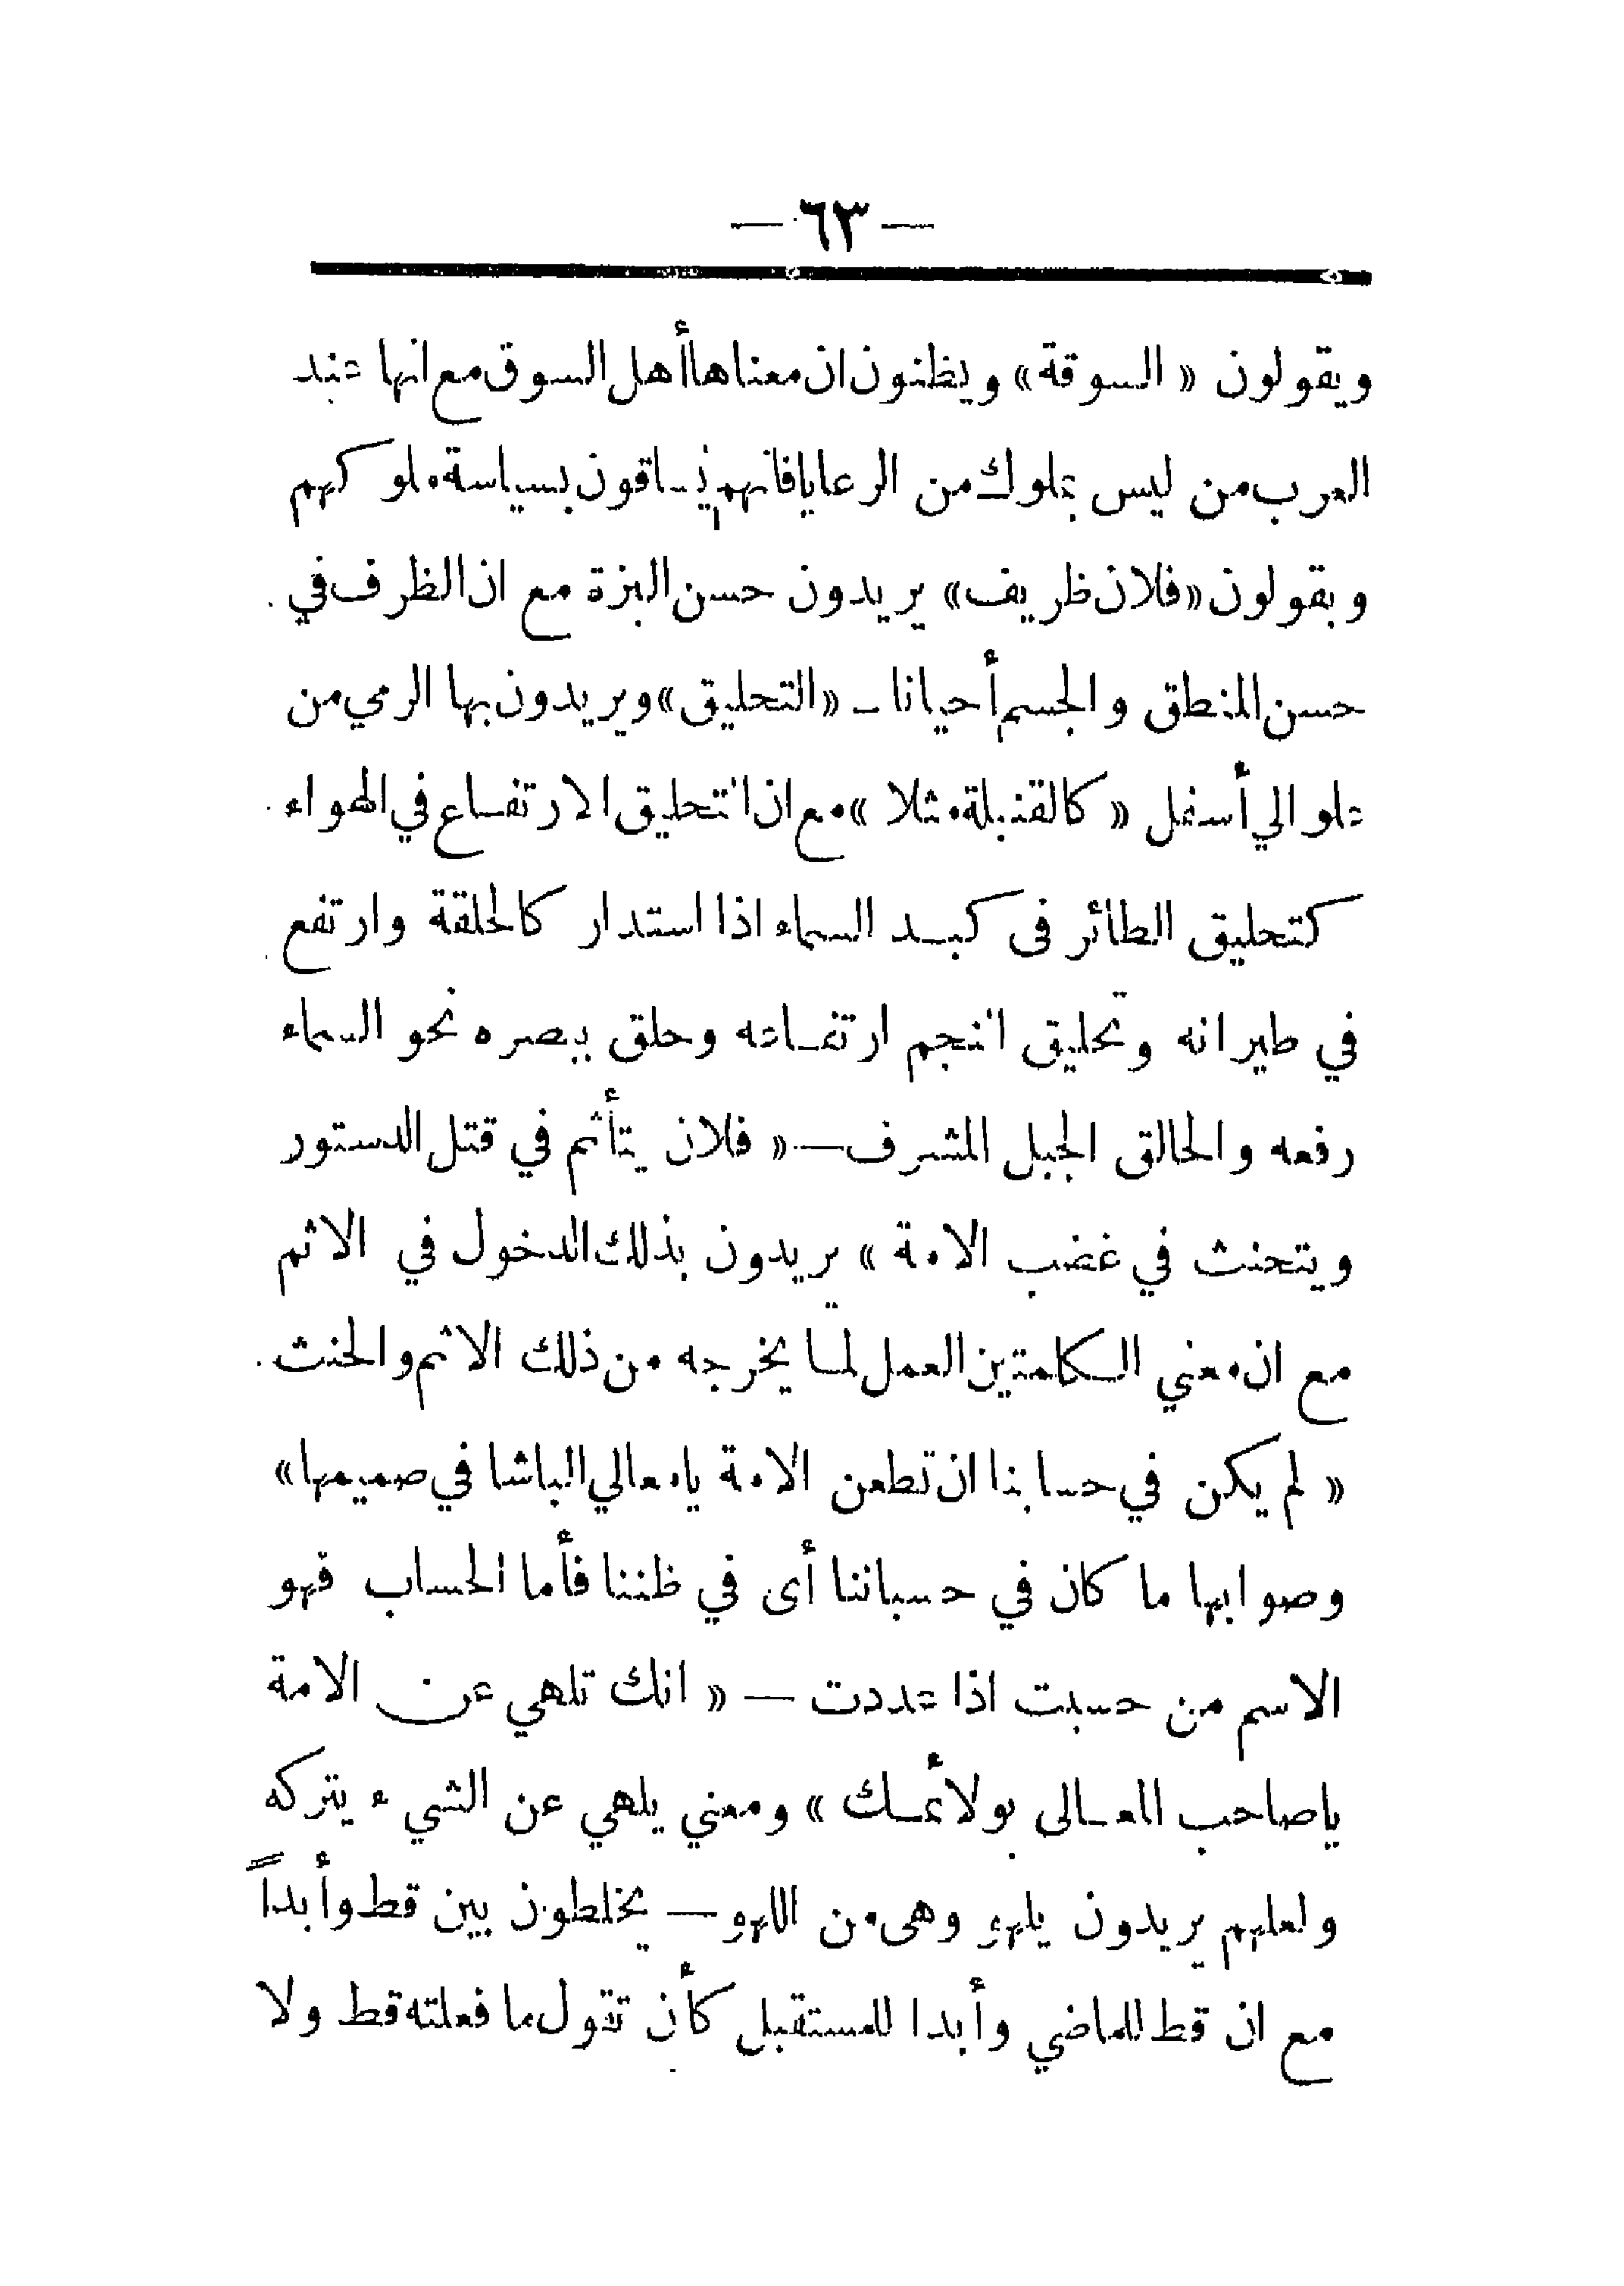 — ٦٣ —
ويقولون « السوقة » ويظنون ان معناها أهل السوق مع انها عند
العرب من ليس بملوك من الرعايا فانهم يساقون بسياسة ملوكهم
ويقولون «فلان ظريف» يريدون حسن البزة مع ان الظرف في
حسن المنطق والجسم أحيانا – «التحليق» ويريدون بها الرمي من
علو الي أسفل « كالقنبلة مثلا » مع ان التحليق الارتفاع في الهواء
كتحليق الطائر فى كبد السماء اذا استدار كالحلقة وارتفع
في طيرانه وتحليق النجم ارتفاعه وحلق ببصره نحو السماء
رفعه والحالق الجبل المشرف — « فلان يتأثم في قتل الدستور
ويتحنث في غضب الامة » يريدون بذلك الدخول في الاثم
مع ان معني الكلمتين العمل لما يخرجه من ذلك الاثم والحنث
« لم يكن في حسابنا ان تطعن الامة يامعالي الباشا في صميمها »
وصوابها ما كان في حسباننا أى في ظننا فأما الحساب فهو
الاسم من حسبت اذا عددت — « انك تلهي عن الامة
ياصاحب المعالى بولائمك » ومعني يلهي عن الشيء يتركه
ولعلهم يريدون يلهو وهى من اللهو — يخلطون بين قط وأبداً
مع ان قط للماضي وأبدا للمستقبل كأن تقول ما فعلته قط ولا